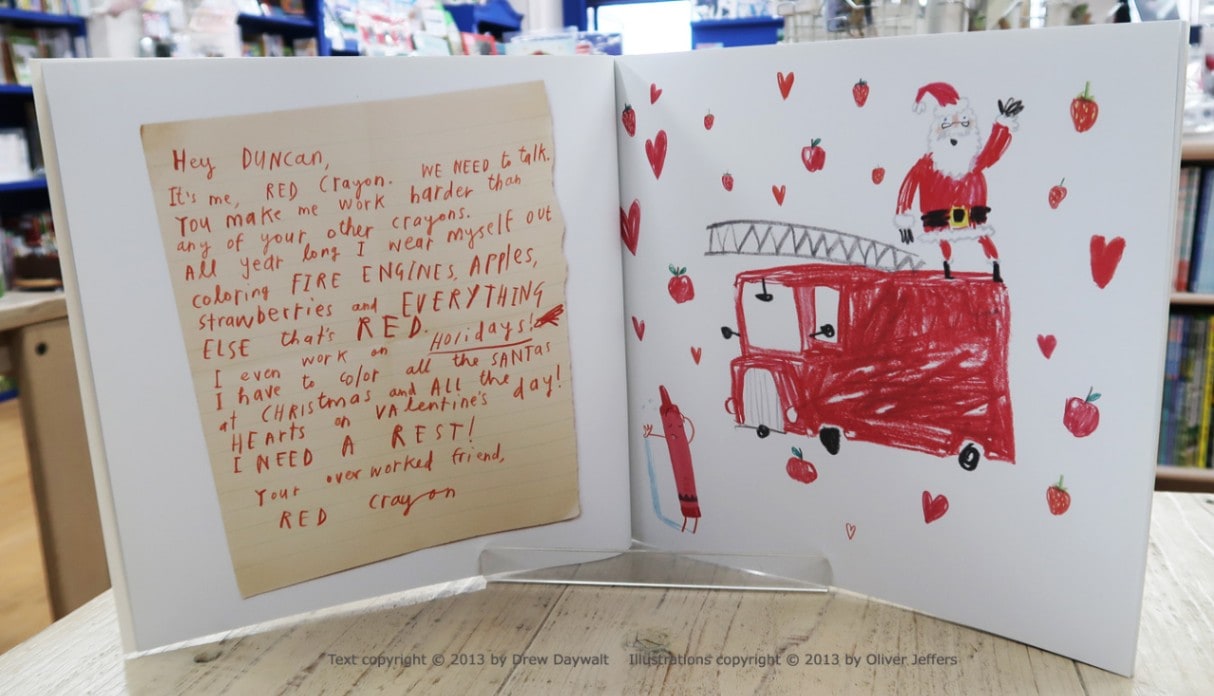 Hey DUNCAN,
It's me, RED Crayon. WE NEED to talk.
You make me work harder than
any of your other crayons.
All year long I wear myself out
coloring FIRE ENGINES, Apples,
strawberries and EVERYTHING
ELSE that's RED.
I even work on Holidays!
I have to color all the SANTAS
at CHRistmas and ALL the
HEARTS on VAlentine's day!
I NEED A REST!
Your overworked friend,
RED crayon
Text copyright © 2013 by Drew Daywalt Illustrations copyright © 2013 by Oliver Jeffers